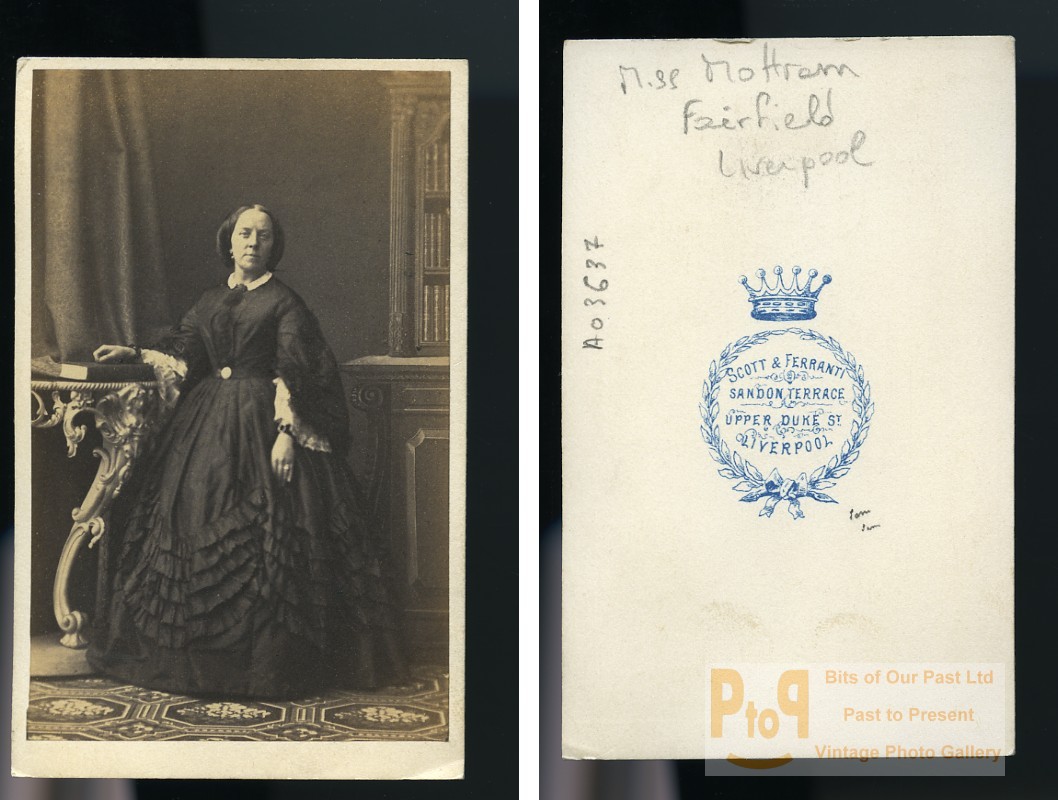 Miss Mottram
Fairfield
Liverpool
A03637
SCOTT & FERRANTI
SANDON TERRACE
UPPER DUKE ST.
LIVERPOOL
PtoP
Bits of Our Past Ltd
Past to Present
Vintage Photo Gallery